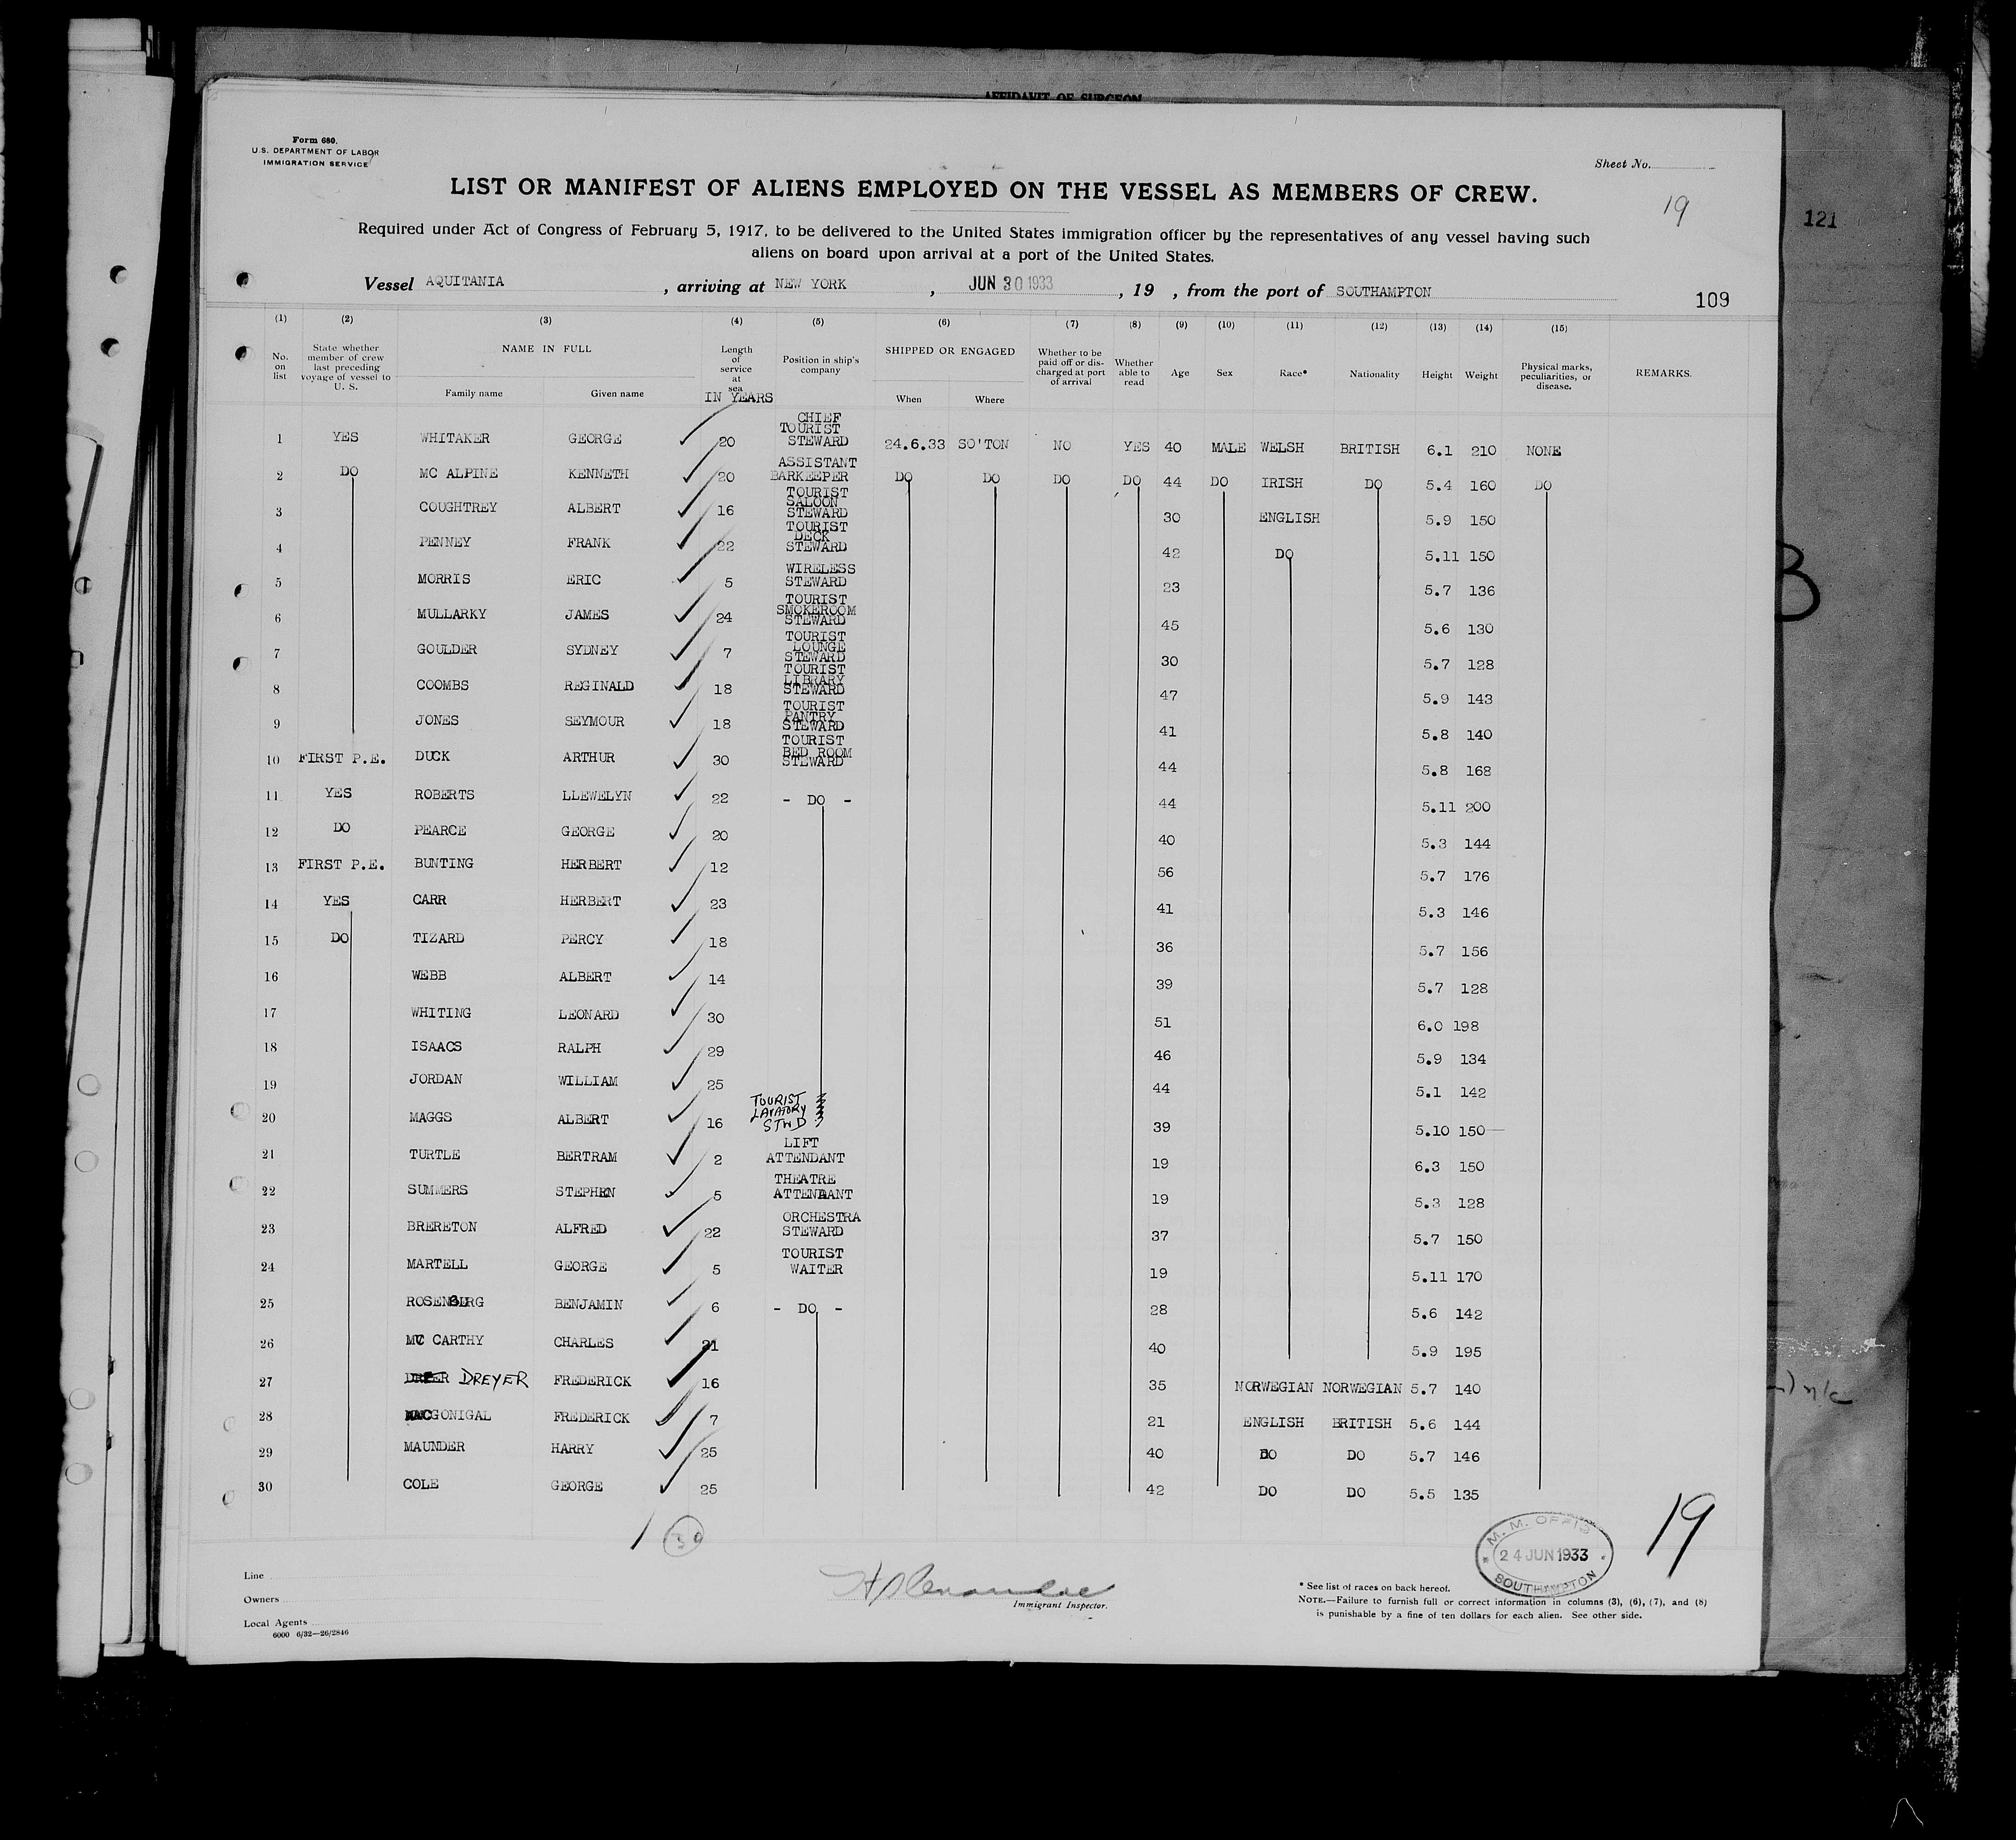 AFFIDAVIT OF SURGEON
Form 680.
U.S. DEPARTMENT OF LABOR
IMMIGRATION SERVICE
Sheet No.
LIST OR MANIFEST OF ALIENS EMPLOYED ON THE VESSEL AS MEMBERS OF CREW.
19
121
Required under Act of Congress of February 5, 1917, to be delivered to the United States immigration officer by the representatives of any vessel having such
aliens on board upon arrival at a port of the United States.
Vessel AQUITANIA , arriving at NEW YORK , JUN 30 1933 , 19 , from the port of SOUTHAMPTON
109
(1) (2) (3) (4) (5) (6) (7) (8) (9) (10) (11) (12) (13) (14) (15)
No. on list
State whether member of crew last preceding voyage of vessel to U. S.
NAME IN FULL
Family name Given name
Length of service at sea
IN YEARS
Position in ship's company
SHIPPED OR ENGAGED
When Where
Whether to be paid off or discharged at port of arrival
Whether able to read
Age Sex Race* Nationality Height Weight
Physical marks, peculiarities, or disease.
REMARKS.
1 YES WHITAKER GEORGE 20 CHIEF TOURIST STEWARD 24.6.33 SO'TON NO YES 40 MALE WELSH BRITISH 6.1 210 NONE
2 DO MC ALPINE KENNETH 20 ASSISTANT BARKEEPER DO DO DO DO 44 DO IRISH DO 5.4 160 DO
3 COUGHTREY ALBERT 16 TOURIST SALOON STEWARD 30 ENGLISH 5.9 150
4 PENNEY FRANK 22 TOURIST DECK STEWARD 42 DO 5.11 150
5 MORRIS ERIC 5 WIRELESS STEWARD 23 5.7 136
6 MULLARKY JAMES 24 TOURIST SMOKEROOM STEWARD 45 5.6 130
7 GOULDER SYDNEY 7 TOURIST LOUNGE STEWARD 30 5.7 128
8 COOMBS REGINALD 18 TOURIST LIBRARY STEWARD 47 5.9 143
9 JONES SEYMOUR 18 TOURIST PANTRY STEWARD 41 5.8 140
10 FIRST P.E. DUCK ARTHUR 30 TOURIST BED ROOM STEWARD 44 5.8 168
11 YES ROBERTS LLEWELYN 22 - DO - 44 5.11 200
12 DO PEARCE GEORGE 20 40 5.3 144
13 FIRST P.E. BUNTING HERBERT 12 56 5.7 176
14 YES CARR HERBERT 23 41 5.3 146
15 DO TIZARD PERCY 18 36 5.7 156
16 WEBB ALBERT 14 39 5.7 128
17 WHITING LEONARD 30 51 6.0 198
18 ISAACS RALPH 29 46 5.9 134
19 JORDAN WILLIAM 25 44 5.1 142
20 MAGGS ALBERT 16 TOURIST LAVATORY STWD 39 5.10 150
21 TURTLE BERTRAM 2 LIFT ATTENDANT 19 6.3 150
22 SUMMERS STEPHEN 5 THEATRE ATTENDANT 19 5.3 128
23 BRERETON ALFRED 22 ORCHESTRA STEWARD 37 5.7 150
24 MARTELL GEORGE 5 TOURIST WAITER 19 5.11 170
25 ROSENBURG BENJAMIN 6 - DO - 28 5.6 142
26 MC CARTHY CHARLES 21 40 5.9 195
27 DREYER FREDERICK 16 35 NORWEGIAN NORWEGIAN 5.7 140
28 MACGONIGAL FREDERICK 7 21 ENGLISH BRITISH 5.6 144
29 MAUNDER HARRY 25 40 DO DO 5.7 146
30 COLE GEORGE 25 42 DO DO 5.5 135
30
19
M. M. OFFICE
24 JUN 1933
SOUTHAMPTON
Line
Owners
Local Agents
6000 6/32—26/2846
Immigrant Inspector.
* See list of races on back hereof.
NOTE.—Failure to furnish full or correct information in columns (3), (6), (7), and (8)
is punishable by a fine of ten dollars for each alien. See other side.